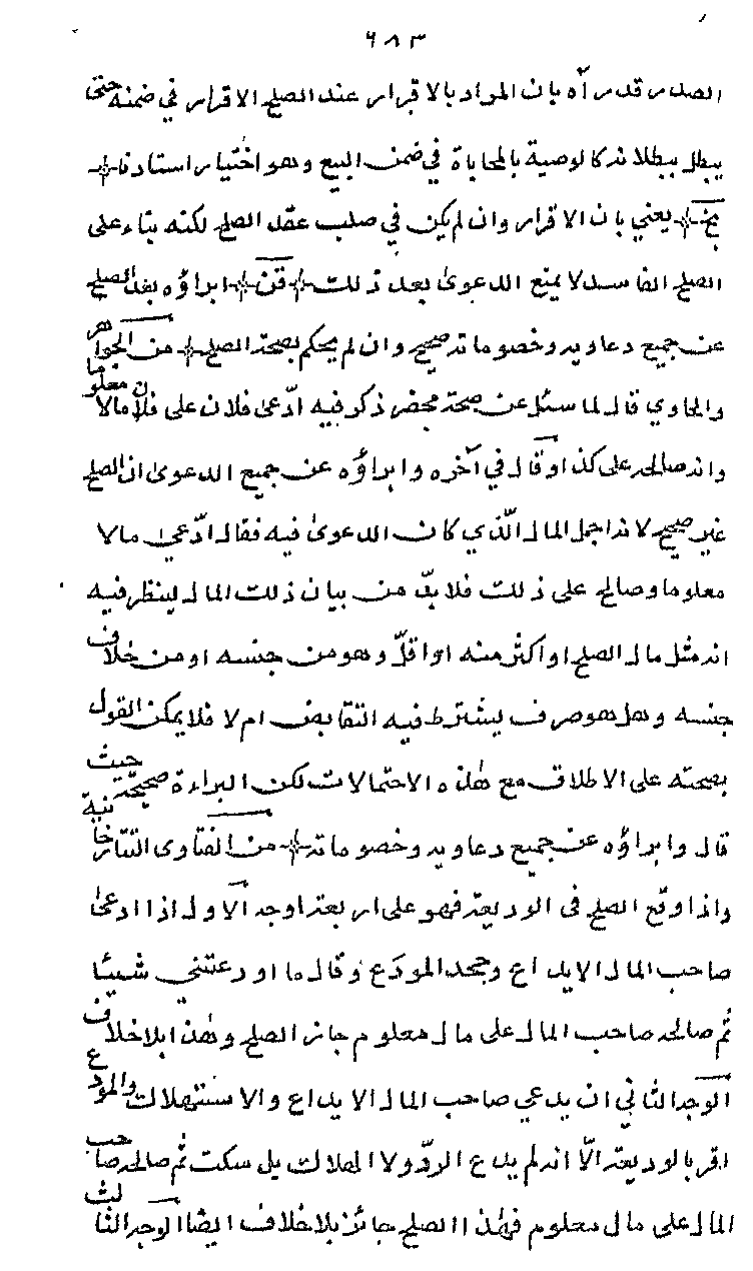 ٦٨٣
الصدر قدره بان المراد بالاقرار عند الصلح الاقرار في ضمنه حتى
يبطل ببطلانه كالوصية بالمحاباة في ضمن البيع وهو اختيار استادنا
بخ يعني بان الاقرار وان لم يكن في صلب عقد الصلح لكنه بناء على
الصلح الفاسد لا يمنع الدعوى بعد ذلك قن ابراؤه بعد الصلح
عن جميع دعاويه وخصوماته صحيح وان لم يحكم بصحة الصلح من الجواهر
والحاوي قال لما سئل عن صحة محضر ذكر فيه ادّعى فلان على فلان مالا معلوما
وانه صالحه على كذا وقال في آخره وابراؤه عن جميع الدعوى ان الصلح
غير صحيح لانه اجمل المال الّذي كان الدعوى فيه فقال ادّعى مالا
معلوما وصالح على ذلك فلا بدّ من بيان ذلك المال لينظر فيه
انه مثل مال الصلح او اكثر منه او اقلّ وهو من جنسه او من خلاف
جنسه وهل هو صرف يشترط فيه التقابض ام لا فلا يمكن القول
بصحته على الاطلاق مع هذه الاحتمالات لكن البراءة صحيحة حيث
قال وابراؤه عن جميع دعاويه وخصوماته من الفتاوى التتارخانية
واذا وقع الصلح فى الوديعة فهو على اربعة اوجه الاول اذا ادعى
صاحب المال الايداع وجحد المودَع وقال ما اودعتني شيئا
ثم صالحه صاحب المال على مال معلوم جاز الصلح وهذا بلا خلاف
الوجه الثاني ان يدعي صاحب المال الايداع والاستهلاك والمودع
اقر بالوديعة الّا انه لم يدع الردّ ولا الهلاك بل سكت ثم صالحه صاحب
المال على مال معلوم فهذا الصلح جائز بلا خلاف ايضا الوجه الثالث